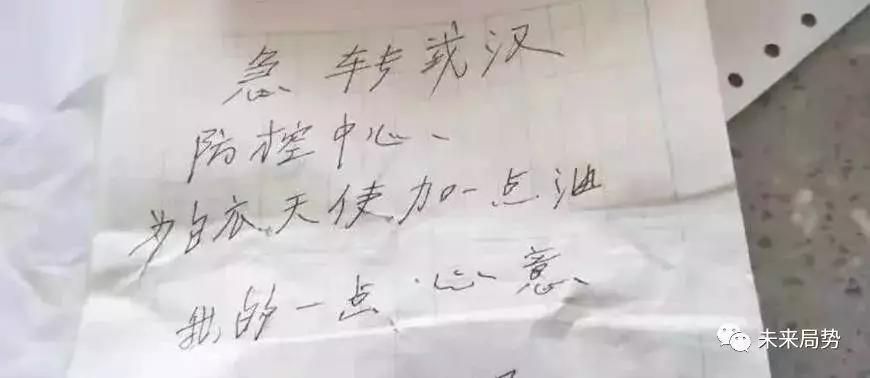 急 转武汉
防控中心、
为白衣天使加一点油
我的一点心意
未来局势